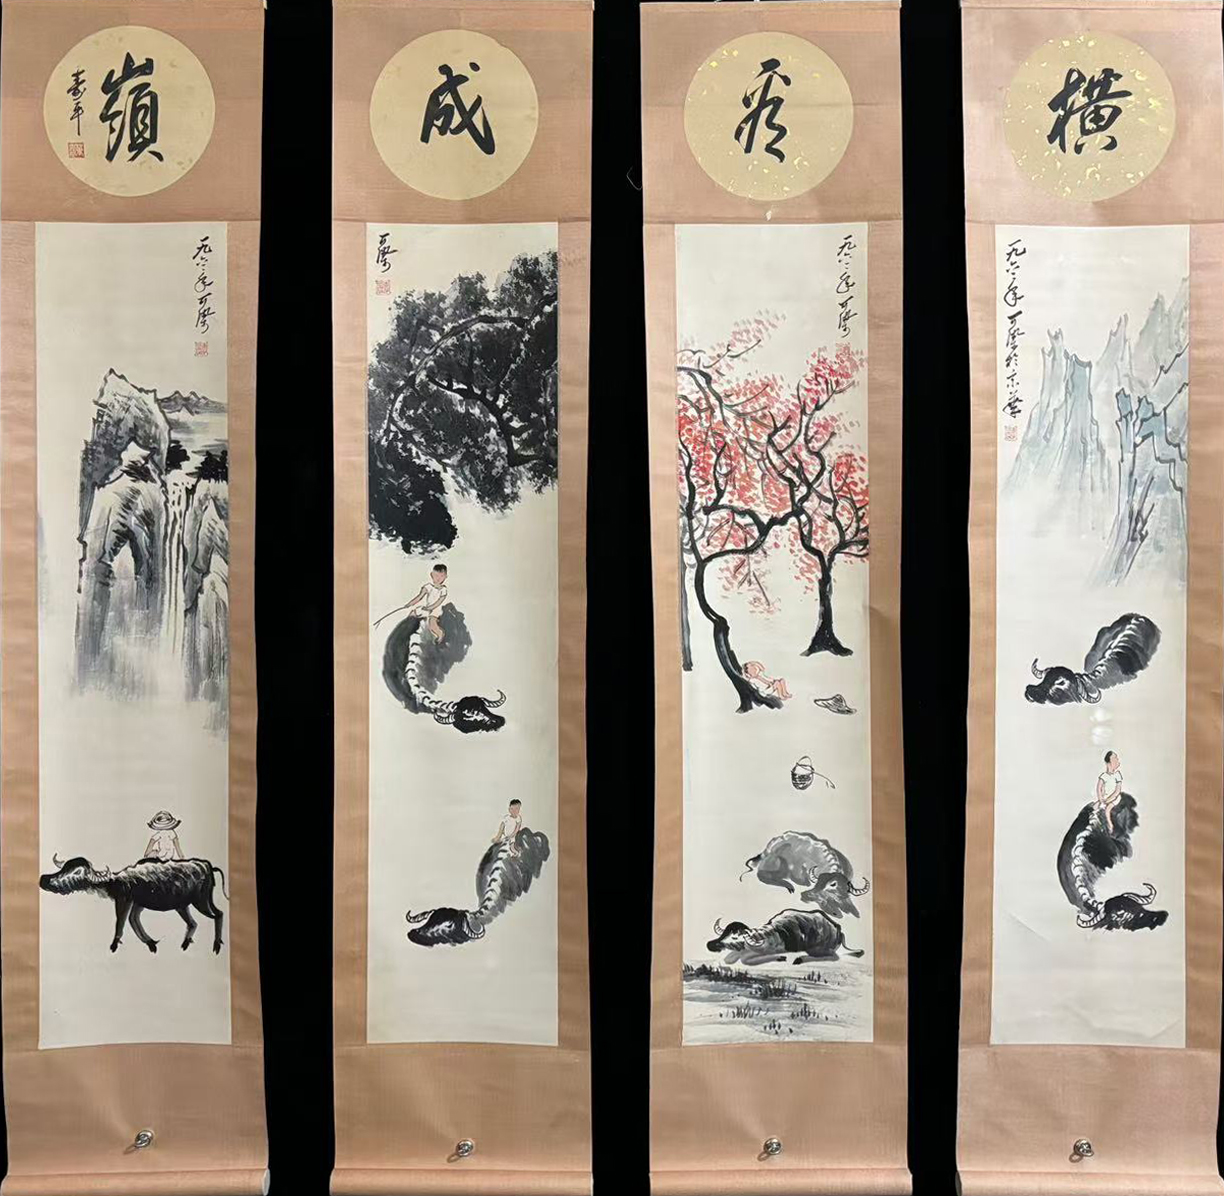 横
一九六二年可染於京華
看
一九六二年可染
成
可染
嶺
壽平
一九六二年可染